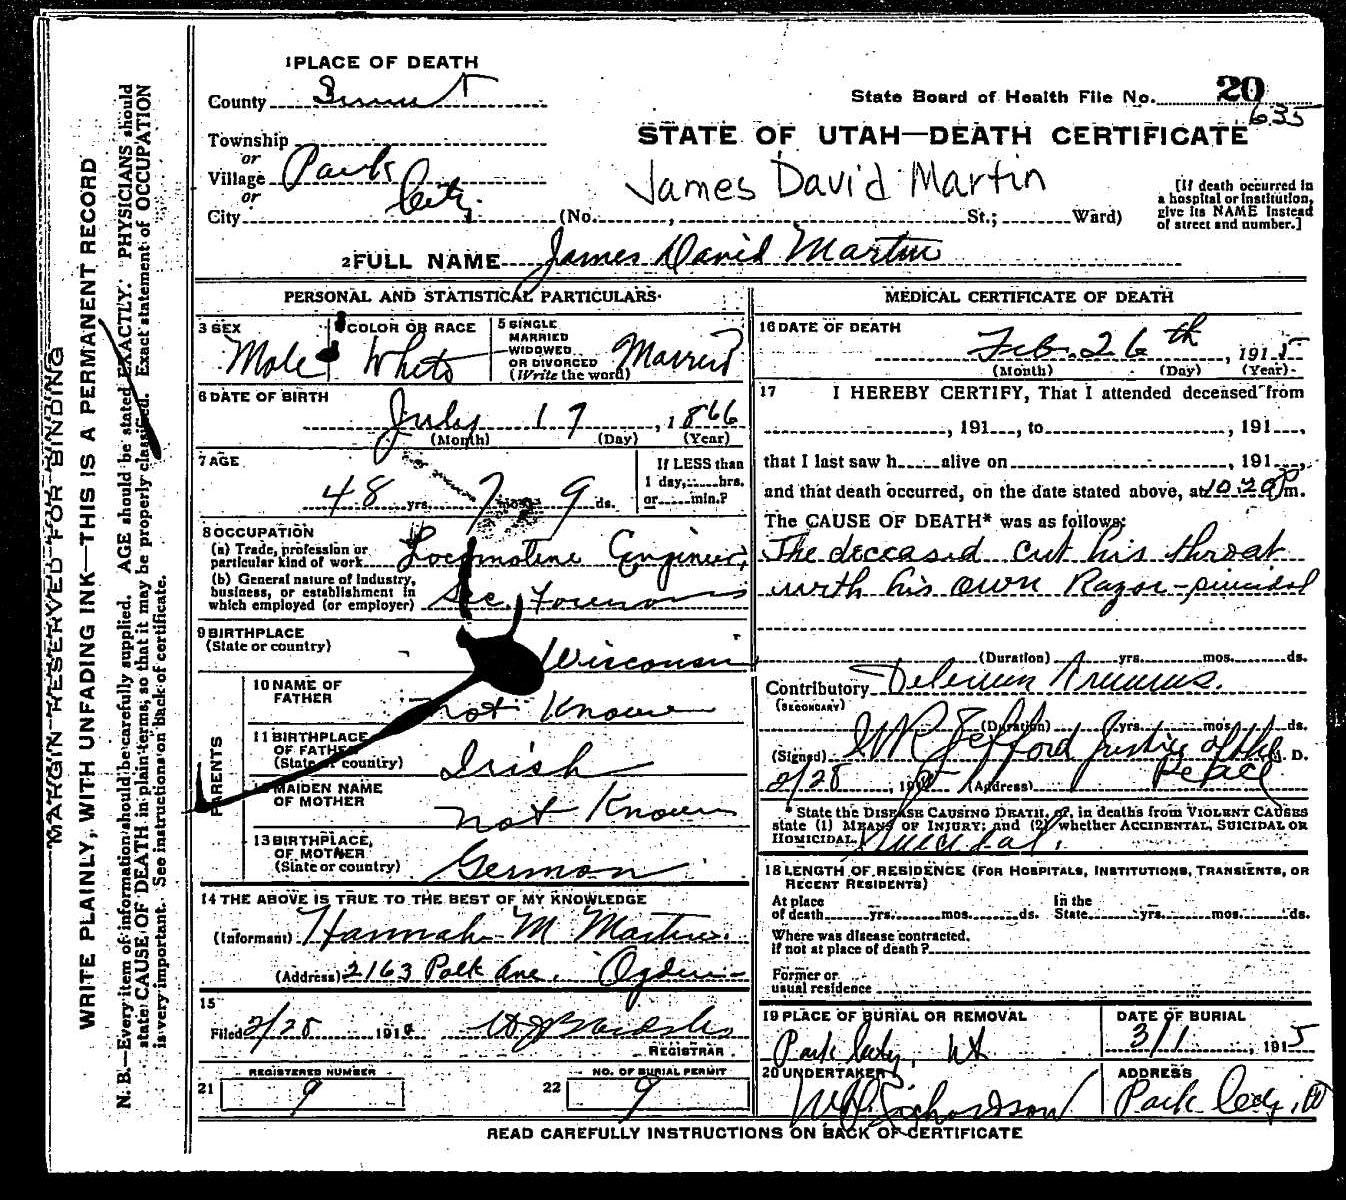 1 PLACE OF DEATH
County Summit
State Board of Health File No. 20
635
STATE OF UTAH—DEATH CERTIFICATE
Township
or
Village Park City
or
City (No. , St.; Ward)
James David Martin
[If death occurred in
a hospital or institution,
give its NAME instead
of street and number.]
2 FULL NAME James David Martin
PERSONAL AND STATISTICAL PARTICULARS
3 SEX Male
4 COLOR OR RACE White
5 SINGLE
MARRIED
WIDOWED
OR DIVORCED
(Write the word) Married
6 DATE OF BIRTH
July 17, 1866
(Month) (Day) (Year)
7 AGE
48 yrs. 7 mos. 9 ds.
If LESS than
1 day, hrs.
or min.?
8 OCCUPATION
(a) Trade, profession or
particular kind of work Locomotive Engineer,
(b) General nature of industry,
business, or establishment in
which employed (or employer) Sec. Foreman
9 BIRTHPLACE
(State or country) Wisconsin
PARENTS
10 NAME OF
FATHER not Known
11 BIRTHPLACE
OF FATHER
(State or country) Irish
12 MAIDEN NAME
OF MOTHER not Known
13 BIRTHPLACE
OF MOTHER
(State or country) German
14 THE ABOVE IS TRUE TO THE BEST OF MY KNOWLEDGE
(Informant) Hannah M Martin
(Address) 2163 Polk Ave. Ogden
15
Filed 2/28 191
REGISTRAR
21 REGISTERED NUMBER 9
22 NO. OF BURIAL PERMIT 9
MEDICAL CERTIFICATE OF DEATH
16 DATE OF DEATH
Feb. 26th, 1915
(Month) (Day) (Year)
17 I HEREBY CERTIFY, That I attended deceased from
, 191 , to , 191 ,
that I last saw h alive on , 191 ,
and that death occurred, on the date stated above, at 10.20 P m.
The CAUSE OF DEATH* was as follows:
The deceased cut his throat
with his own Razor - suicidal
(Duration) yrs. mos. ds.
Contributory Delerium Tremens.
(SECONDARY)
(Duration) yrs. mos. ds.
(Signed) Jefford Justice of the Peace M. D.
2/28, 191 (Address)
* State the DISEASE CAUSING DEATH, or, in deaths from VIOLENT CAUSES
state (1) MEANS OF INJURY; and (2) whether ACCIDENTAL, SUICIDAL OR
HOMICIDAL. Suicidal.
18 LENGTH OF RESIDENCE (FOR HOSPITALS, INSTITUTIONS, TRANSIENTS, OR
RECENT RESIDENTS)
At place In the
of death yrs. mos. ds. State yrs. mos. ds.
Where was disease contracted,
if not at place of death?
Former or
usual residence
19 PLACE OF BURIAL OR REMOVAL
Park City, Ut
DATE OF BURIAL
3/1, 1915
20 UNDERTAKER
Richardson
ADDRESS
Park City, Ut
READ CAREFULLY INSTRUCTIONS ON BACK OF CERTIFICATE
MARGIN RESERVED FOR BINDING
WRITE PLAINLY, WITH UNFADING INK—THIS IS A PERMANENT RECORD
N. B.—Every item of information should be carefully supplied. AGE should be stated EXACTLY. PHYSICIANS should
state CAUSE OF DEATH in plain terms, so that it may be properly classified. Exact statement of OCCUPATION
is very important. See instructions on back of certificate.